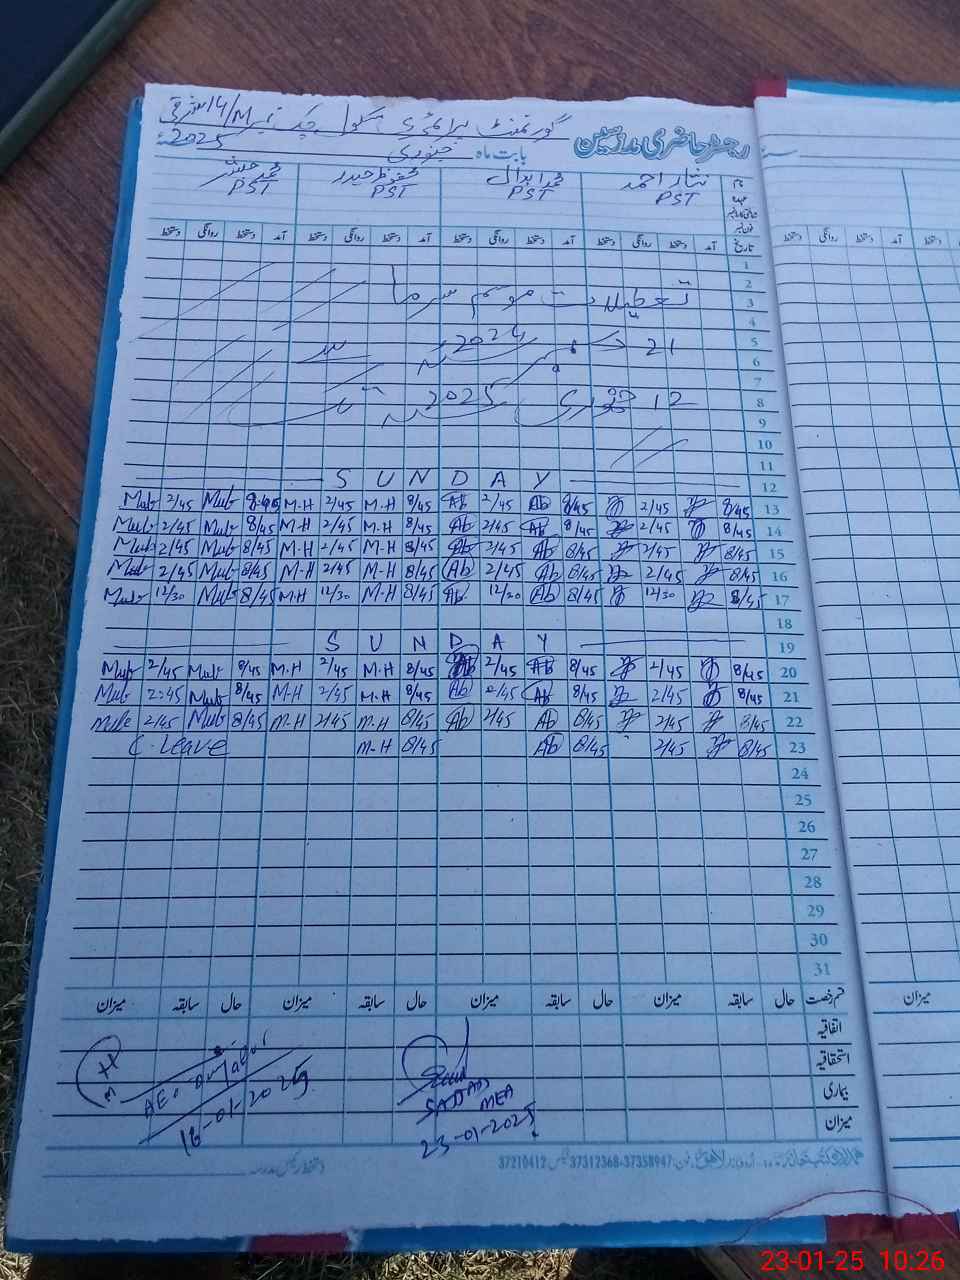 گورنمنٹ پرائمری سکول چک نمبر 14/M شرقی
رجسٹر حاضری مدرسین بابت ماہ جنوری 2025ء
نام نثار احمد محمد ابدال محفوظ حیدر محمد مبشر
عہدہ PST PST PST PST
تاریخ آمد دستخط روانگی دستخط آمد دستخط روانگی دستخط آمد دستخط روانگی دستخط آمد دستخط روانگی دستخط
1
2
3 تعطیلات موسم سرما
4
5 21 دسمبر 2024
6
7
8 12 جنوری 2025 تک
9
10
11
12 SUNDAY
13 8/45 2/45 8/45 Ab 2/45 Ab 8/45 M.H 2/45 M.H 8:45 Mub 2/45 Mub
14 8/45 2/45 8/45 Ab 2/45 Ab 8/45 M.H 2/45 M.H 8/45 Mub 2/45 Mub
15 8/45 2/45 8/45 Ab 2/45 Ab 8/45 M.H 2/45 M-H 8/45 Mub 2/45 Mub
16 8/45 2/45 8/45 Ab 2/45 Ab 8/45 M.H 2/45 M-H 8/45 Mub 2/45 Mub
17 8/45 12/30 8/45 Ab 12/30 Ab 8/45 M-H 12/30 M-H 8/45 Mub 12/30 Mub
18
19 SUNDAY
20 8/45 2/45 8/45 Ab 2/45 Ab 8/45 M.H 2/45 M.H 8/45 Mub 2/45 Mub
21 8/45 2/45 8/45 Ab 2/45 Ab 8/45 M.H 2/45 M-H 8/45 Mub 2:45 Mub
22 8/45 2/45 8/45 Ab 2/45 Ab 8/45 M.H 2/45 M-H 8/45 Mub 2/45 Mub
23 8/45 2/45 8/45 Ab 8/45 M-H C.Leave
24
25
26
27
28
29
30
31
قسم رخصت حال سابقہ میزان حال سابقہ میزان حال سابقہ میزان حال سابقہ میزان
اتفاقیہ
استحقاقیہ
بیماری
میزان
H
M
AEO
16-01-2025
MEA
23-01-2025
37210412 37312368-37358947
میزان
23-01-25 10:26